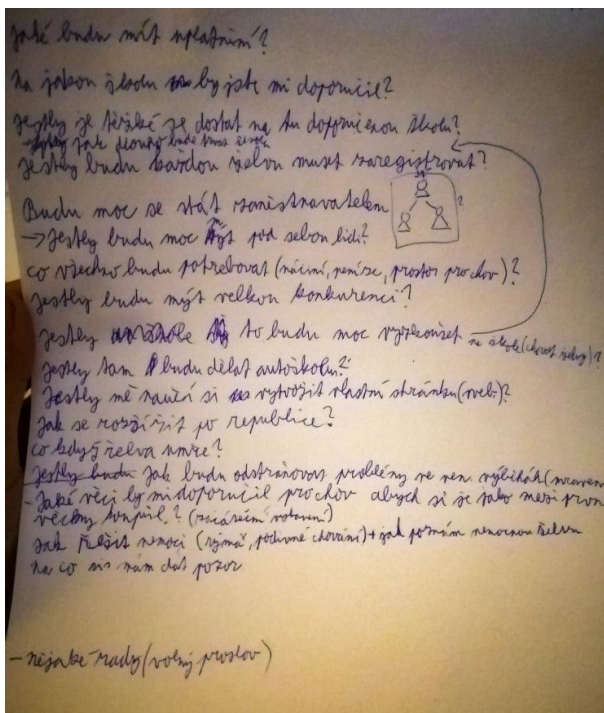 Jaké budu mít uplatnění?
Na jakou školu by jste mi doporučil?
Jestly je těžké je dostat na tu doporučenou školu?
jak dlouho bude trvat škola
Jestly budu každou želvu muset zaregistrovat?
Budu moc se stát zaměstnavatelem ?
→ Jestly budu moc mýt pod sebou lidi?
co všechno budu potřebovat (náčiní, peníze, prostor pro chov)?
Jestly budu mýt velkou konkurenci?
Jestly to budu moc vyzkoušet na škole (chovat želvy)?
Jestly tam budu dělat autoškolu?
Jestly mě naučí si vytvořit vlastní stránku (web)?
Jak se rozšířit po republice?
co když želva umře?
Jak budu odstraňovat problémy ve ven. výbězích (mraven
- Jaké věci by mi doporučil pro chov abych si je jako mezi první
věcmy koupil? (začáteční vybavení)
Jak řešit nemoci (rýma, podivné chování) + jak poznám nemocnou želvu
na co si mám dát pozor
- nějaké rady (volný proslov)